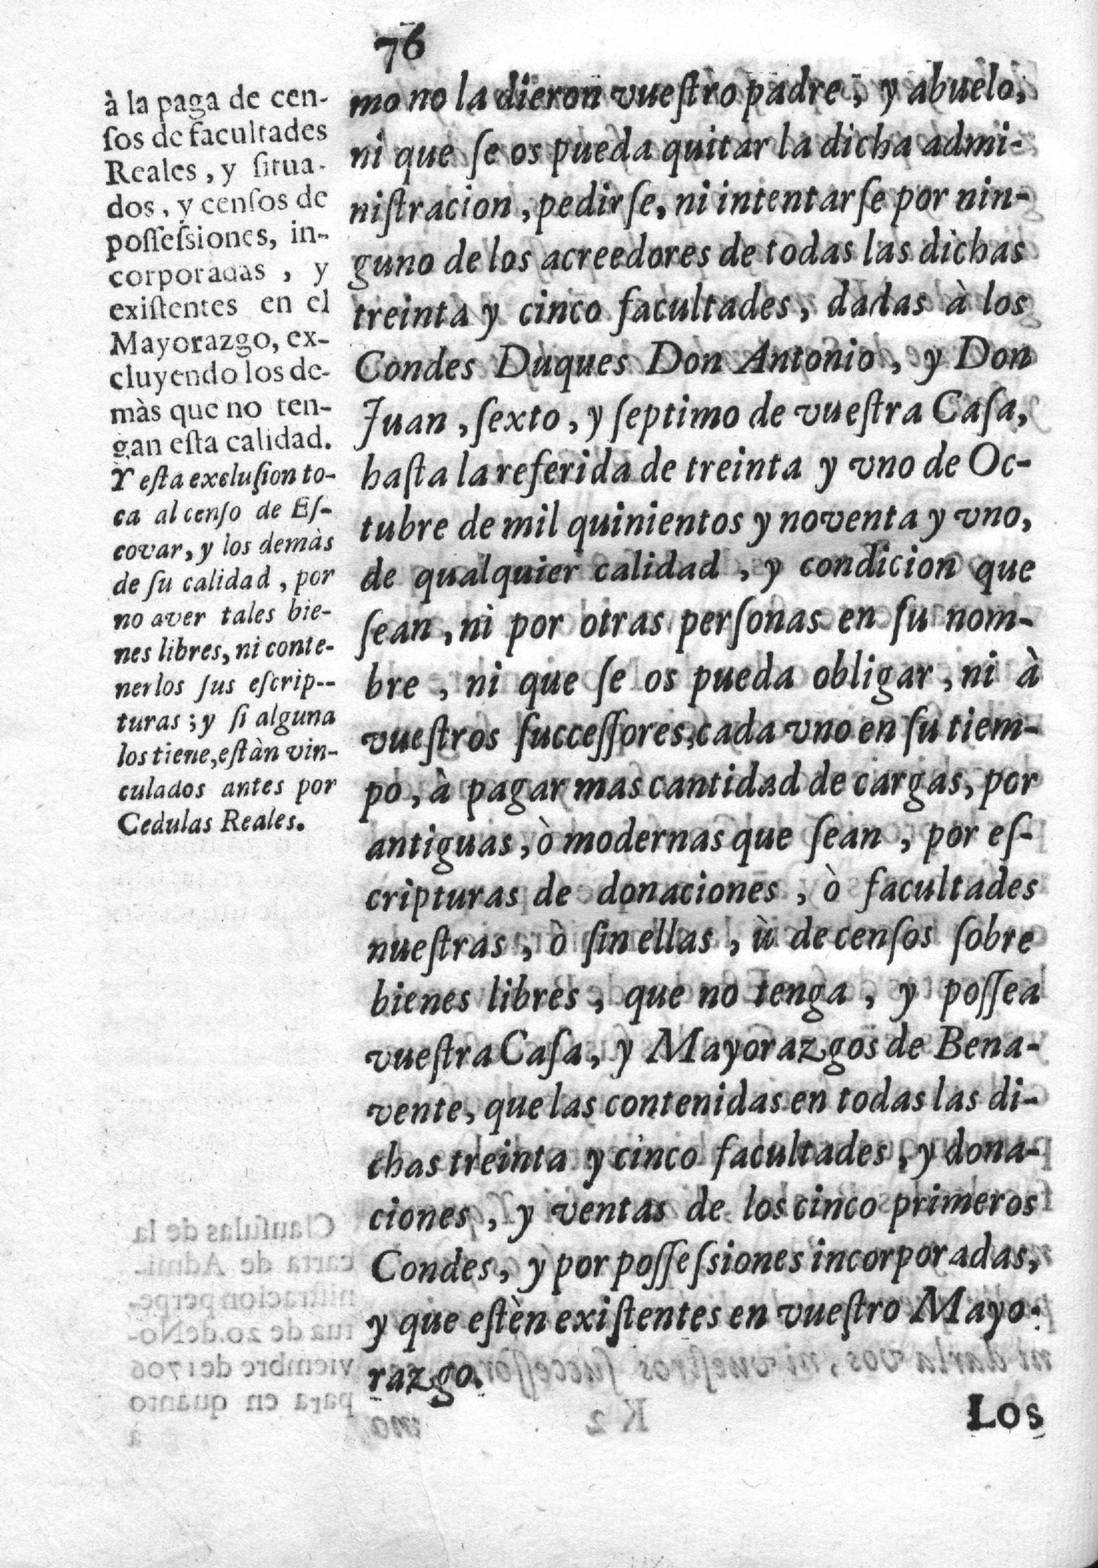 76
à la paga de cen-
ſos de facultades
Reales, y ſitua-
dos, y cenſos de
poſſeſsiones, in-
corporadas, y
exiſtentes en el
Mayorazgo, ex-
cluyendo los de-
màs que no ten-
gan eſta calidad.
Y eſta excluſion to-
ca al cenſo de Eſ-
covar, y los demàs
de ſu calidad, por
no aver tales bie-
nes libres, ni conte-
nerlos ſus eſcrip--
turas; y ſi alguna
los tiene, eſtàn vin-
culados antes por
Cedulas Reales.
mo no la dieron vueſtro padre, y abuelo,
ni que ſe os pueda quitar la dicha admi-
niſtracion, pedirſe, ni intentarſe por nin-
guno de los acreedores de todas las dichas
treinta y cinco facultades, dadas à los
Condes Duques Don Antonio, y Don
Juan, ſexto, y ſeptimo de vueſtra Caſa,
haſta la referida de treinta y vno de Oc-
tubre de mil quinientos y noventa y vno,
de qualquier calidad, y condicion que
ſean, ni por otras perſonas en ſu nom-
bre, ni que ſe os pueda obligar, ni à
vueſtros ſucceſſores, cada vno en ſu tiem-
po, à pagar mas cantidad de cargas, por
antiguas, ò modernas que ſean, por eſ-
cripturas de donaciones, ò facultades
nueſtras, ò ſin ellas, ù de cenſos ſobre
bienes libres, que no tenga, y poſſea
vueſtra Caſa, y Mayorazgos de Bena-
vente, que las contenidas en todas las di-
chas treinta y cinco facultades, y dona-
ciones, y ventas de los cinco primeros
Condes, y por poſſeſsiones incorporadas,
y que eſtèn exiſtentes en vueſtro Mayo-
razgo.
Los